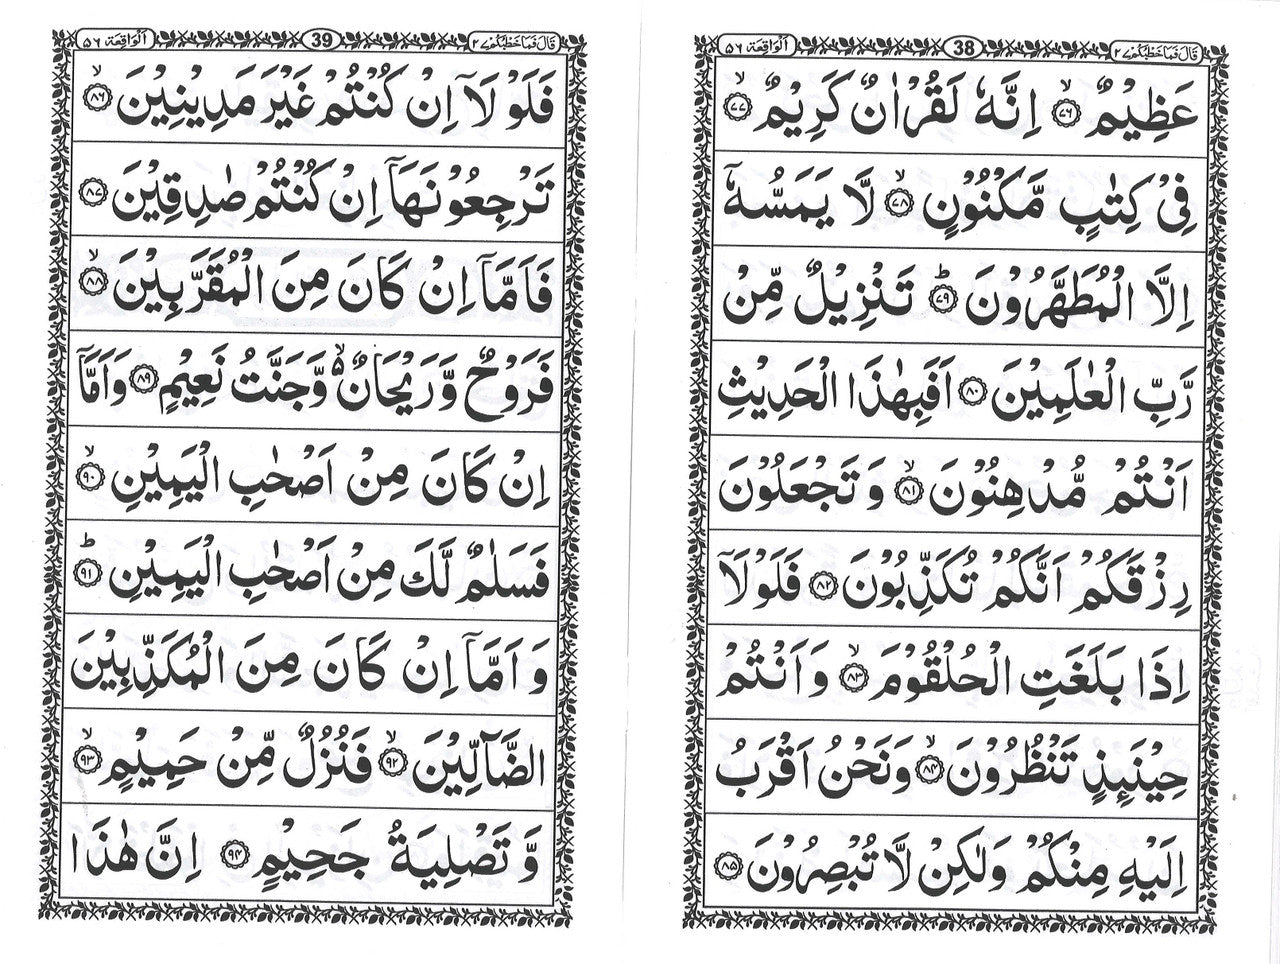 قَالَ فَمَا خَطْبُكُمْ ٢٧
38
اَلْوَاقِعَة ٥٦
عَظِيْمٌ ﴿٧٦﴾ اِنَّهٗ لَقُرْاٰنٌ كَرِيْمٌ ﴿٧٧﴾
فِيْ كِتٰبٍ مَّكْنُوْنٍ ﴿٧٨﴾ لَّا يَمَسُّهٗٓ
اِلَّا الْمُطَهَّرُوْنَ ﴿٧٩﴾ تَنْزِيْلٌ مِّنْ
رَّبِّ الْعٰلَمِيْنَ ﴿٨٠﴾ اَفَبِهٰذَا الْحَدِيْثِ
اَنْتُمْ مُّدْهِنُوْنَ ﴿٨١﴾ وَتَجْعَلُوْنَ
رِزْقَكُمْ اَنَّكُمْ تُكَذِّبُوْنَ ﴿٨٢﴾ فَلَوْلَآ
اِذَا بَلَغَتِ الْحُلْقُوْمَ ﴿٨٣﴾ وَاَنْتُمْ
حِيْنَىِٕذٍ تَنْظُرُوْنَ ﴿٨٤﴾ وَنَحْنُ اَقْرَبُ
اِلَيْهِ مِنْكُمْ وَلٰكِنْ لَّا تُبْصِرُوْنَ ﴿٨٥﴾
قَالَ فَمَا خَطْبُكُمْ ٢٧
39
اَلْوَاقِعَة ٥٦
فَلَوْلَآ اِنْ كُنْتُمْ غَيْرَ مَدِيْنِيْنَ ﴿٨٦﴾
تَرْجِعُوْنَهَآ اِنْ كُنْتُمْ صٰدِقِيْنَ ﴿٨٧﴾
فَاَمَّآ اِنْ كَانَ مِنَ الْمُقَرَّبِيْنَ ﴿٨٨﴾
فَرَوْحٌ وَّرَيْحَانٌ ۙ۬ وَّجَنَّتُ نَعِيْمٍ ﴿٨٩﴾ وَاَمَّآ
اِنْ كَانَ مِنْ اَصْحٰبِ الْيَمِيْنِ ﴿٩٠﴾
فَسَلٰمٌ لَّكَ مِنْ اَصْحٰبِ الْيَمِيْنِ ﴿٩١﴾
وَاَمَّآ اِنْ كَانَ مِنَ الْمُكَذِّبِيْنَ
الضَّآلِّيْنَ ﴿٩٢﴾ فَنُزُلٌ مِّنْ حَمِيْمٍ ﴿٩٣﴾
وَّتَصْلِيَةُ جَحِيْمٍ ﴿٩٤﴾ اِنَّ هٰذَا